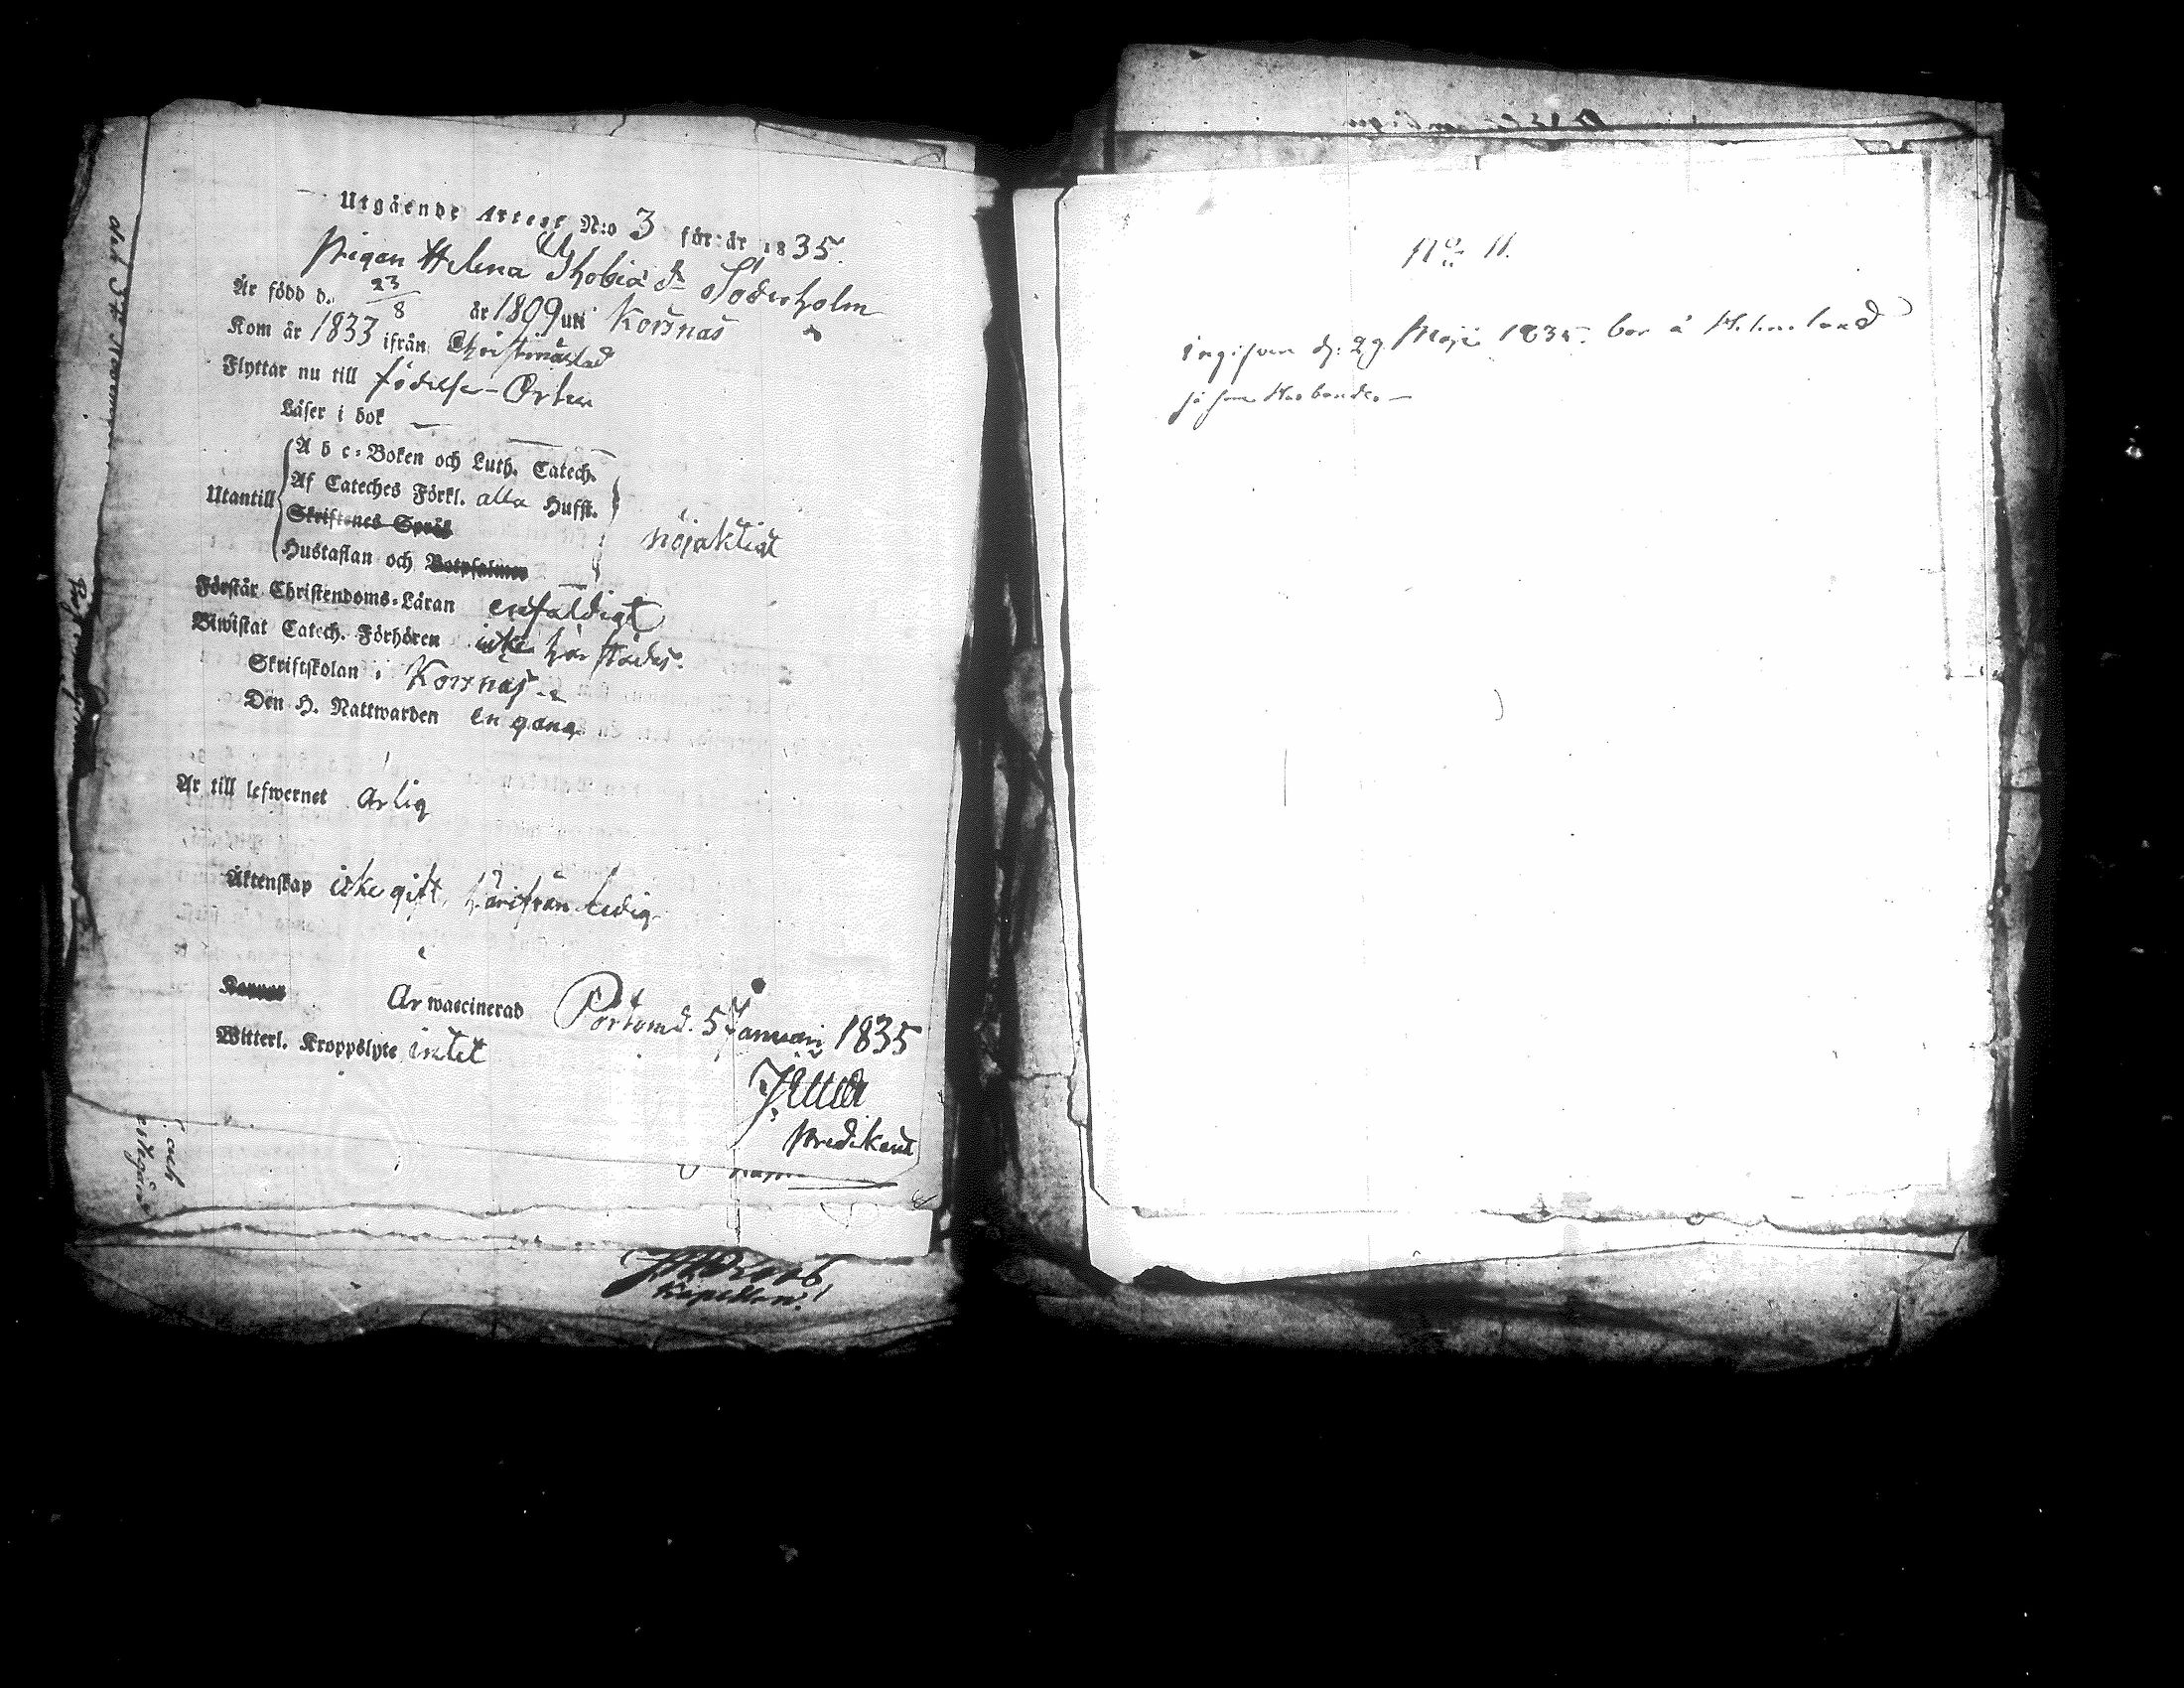 Utgående Attest N:o 3 för år 1835.
Pigan Helena Thobiæ dr Söderholm
Är född d. 23/8 år 1809 uti Korsnäs
Kom år 1833 ifrån Christinæstad
Flyttar nu till födelse-Orten
Läser i bok —
Utantill
A b c-Boken och Luth. Catech.
Af Cateches Förkl. alla Hufst.
Skriftenes Språk
Hustaflan och Botpsalmer
nöjaktigt
Förstår Christendoms-Läran enfaldigt
Biwistat Catech. Förhören icke härstädes.
Skriftskolan i Korsnäs
Den H. Nattwarden en gång
Är till lefwernet ärlig
Äktenskap icke gift, härifrån ledig
Är waccinerad
Witterl. Kroppslyte intet
Pörtom d. 5 Januari 1835
Predikant
Kapellan.
No 11.
ingifven d: 29 Maji 1835. bor å